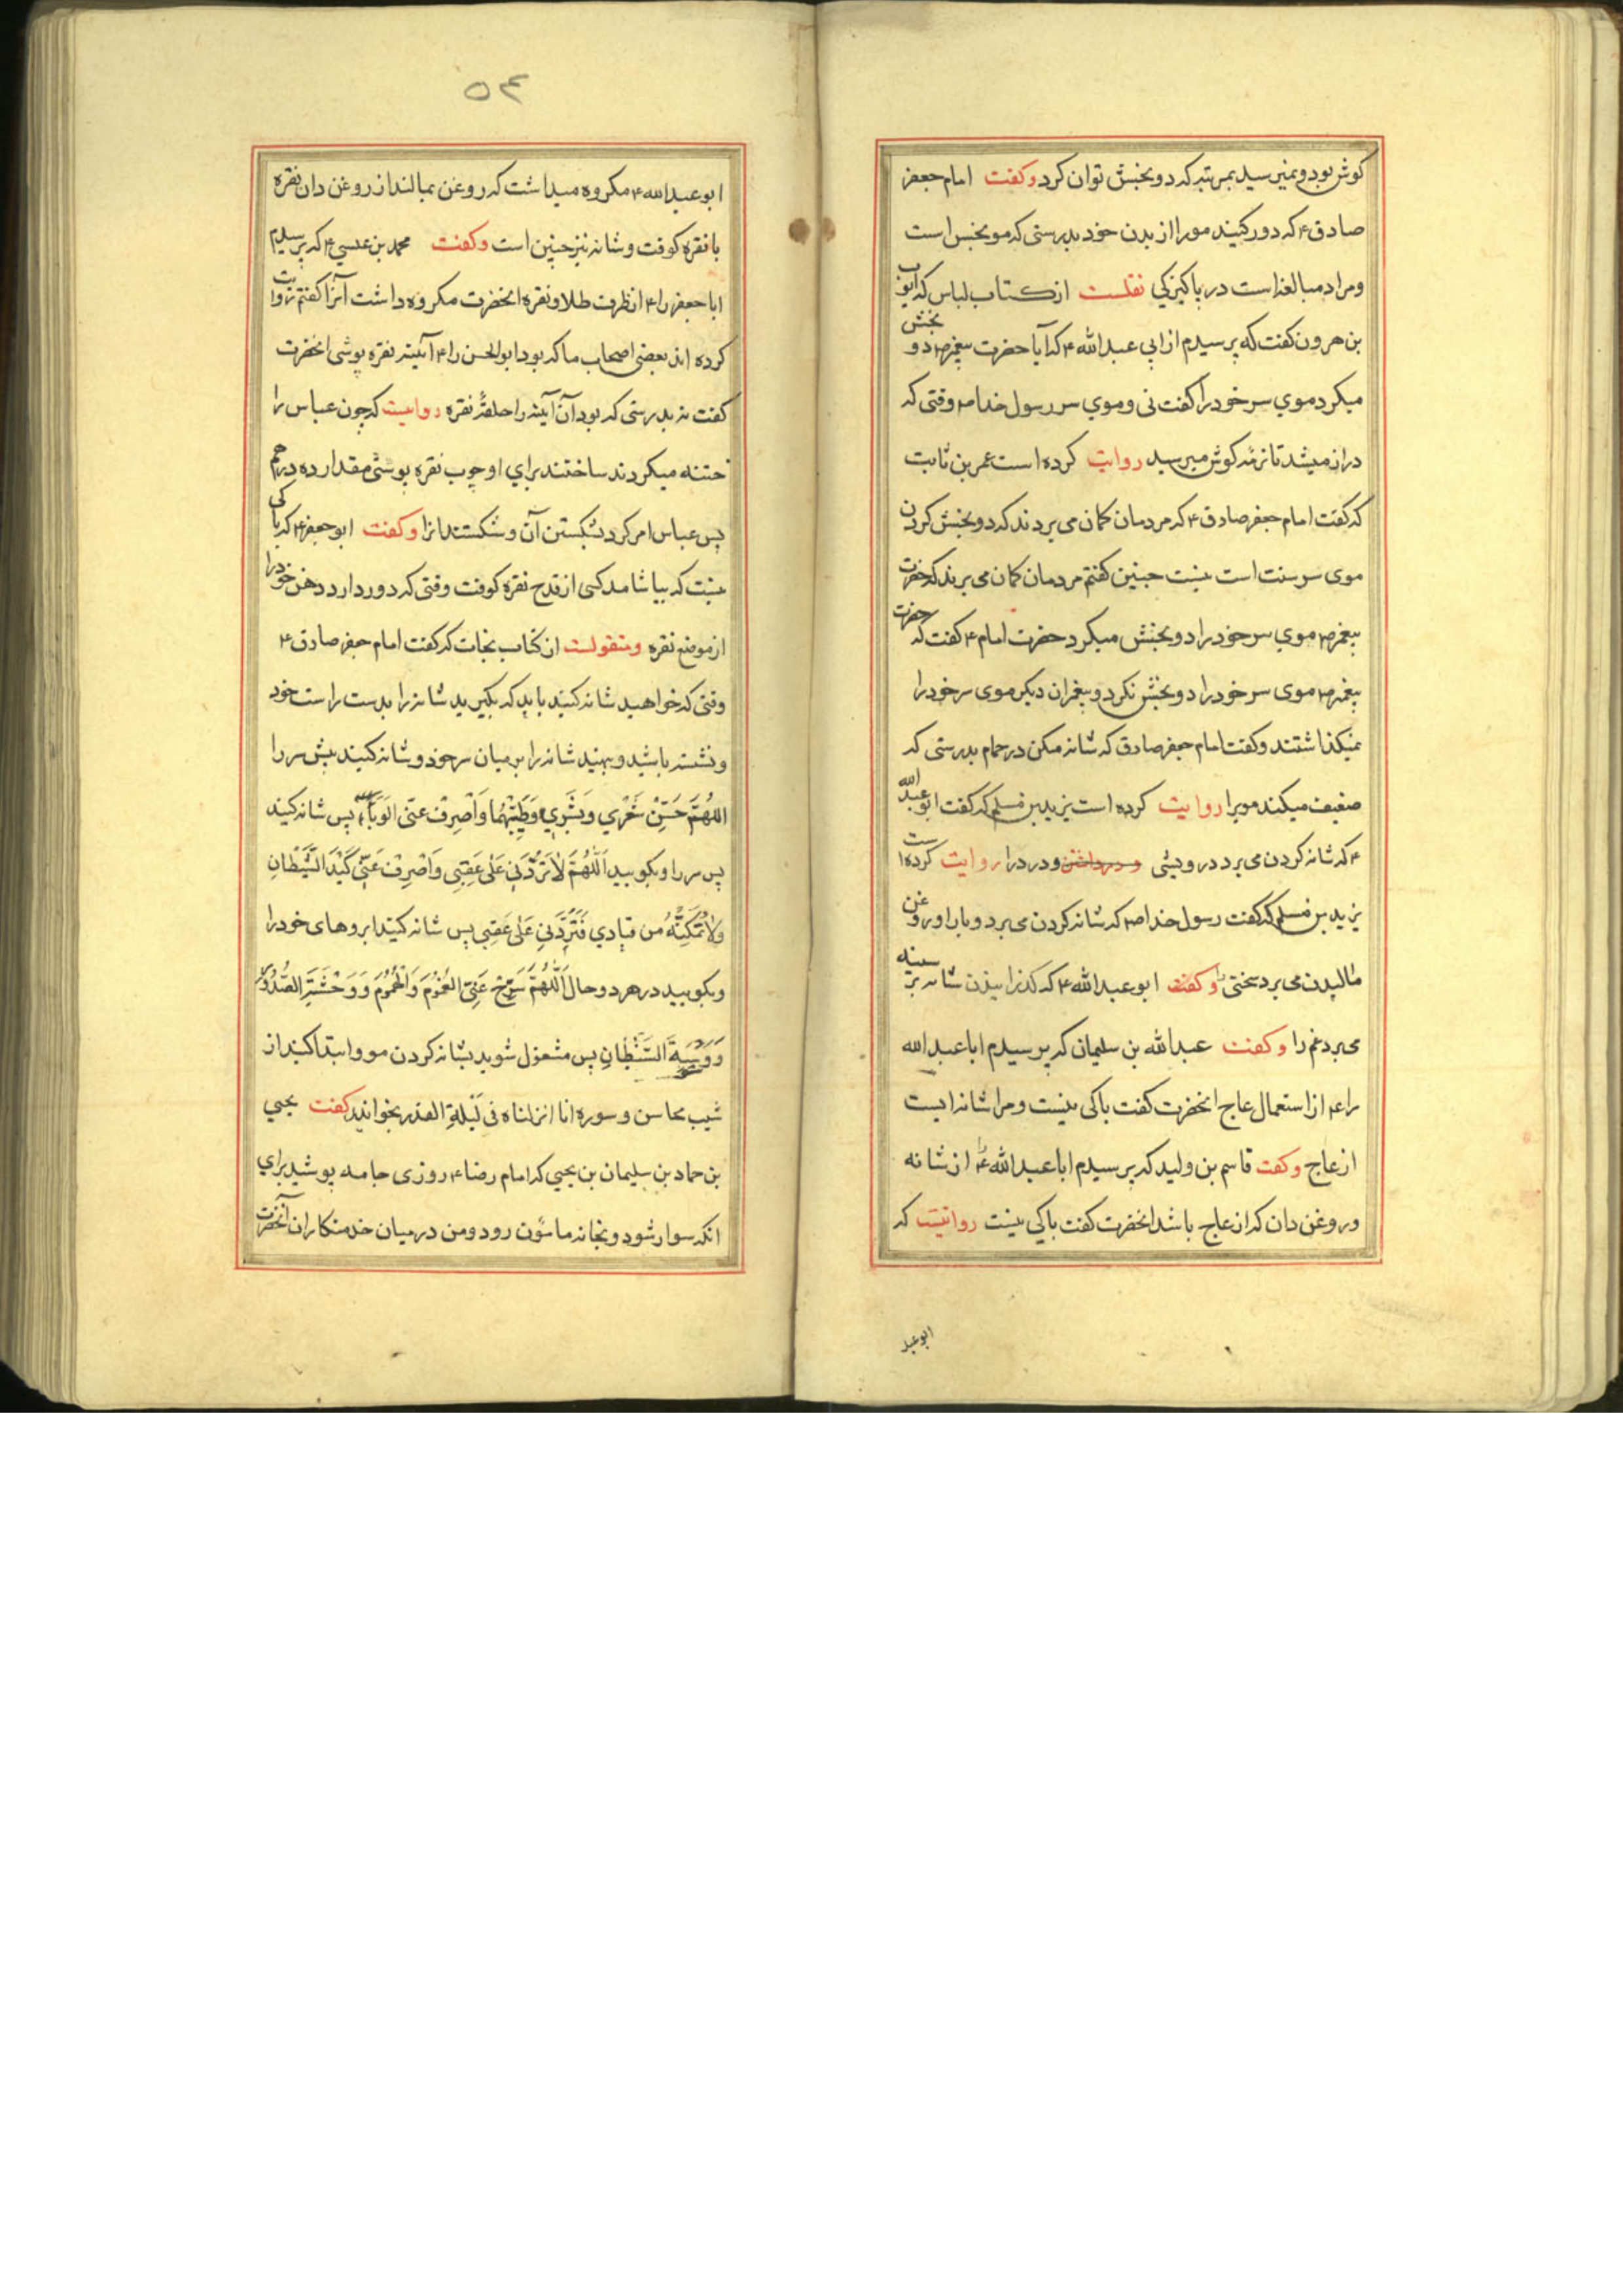 کوش بود و نمیرسید بمرتبه که دو بخش توان کرد و کفت امام جعفر
صادق ع که دور کنید مو را از بدن خود بدرستی که مو نجس است
و مراد مبالغه است در پاکیزکی نقلست از کتاب لباس که ایوب
بن هرون کفت که پرسیدم از ابی عبدالله ع که آیا حضرت پیغمبر ص دو بخش
میکرد موی سر خود را کفت نی و موی سر رسول خدا ص وقتی که
دراز میشد تا نرمه کوش میرسید روایت کرده است عمر بن ثابت
که کفت امام جعفر صادق ع که مردمان کمان می بردند که دو بخش کردن
موی سر سنت است نیست چنین کفتم مردمان کمان می برند که حضرت
پیغمبر ص موی سر خود را دو بخش میکرد حضرت امام ع کفت که حضرت
پیغمبر ص موی سر خود را دو بخش نکرد و پیغمبران دیکر موی سر خود را
نمیکذاشتند و کفت امام جعفر صادق که شانه مکن در حمام بدرستی که
ضعیف میکند مویرا روایت کرده است یزید بن مسلم که کفت ابو عبدالله
ع که شانه کردن می برد درویشی و درد را روایت کرده است
یزید بن مسلم که کفت رسول خدا ص که شانه کردن می برد وبا را و روغن
مالیدن می برد سختی را و کفت ابو عبدالله ع که کذرانیدن شانه بر سینه
می برد غم را و کفت عبدالله بن سلیمان که پرسیدم ابا عبدالله
را ع از استعمال عاج انحضرت کفت باکی نیست و مرا شانه ایست
از عاج و کفت قاسم بن ولید که پرسیدم ابا عبدالله را ع از شانه
و روغن دان که از عاج باشد انحضرت کفت باکی نیست روایتست که
ابو عبد
۵۴
ابو عبدالله ع مکروه میداشت که روغن بمالند از روغن دان نقره
یا نقره کوفت و شانه نیز چنین است و کفت محمد بن عیسی ع که پرسیدم
ابا جعفر را ع از ظرف طلا و نقره انحضرت مکروه داشت آنرا کفتم روایت
کرده اند بعضی اصحاب ما که بود ابو الحسن را ع آئینه نقره پوشی انحضرت
کفت نه بدرستی که بود آن آینه را حلقهٔ نقره روایست که چون عباس را
ختنه میکردند ساختند برای او چوب نقره پوشی مقدار ده درهم
پس عباس امر کرد بشکستن آن و شکستند انرا و کفت ابو جعفر ع که باکی
نیست که بیاشامد کسی از قدح نقره کوفت وقتی که دور دارد دهن خود را
از موضع نقره و منقولست از کتاب نجات که کفت امام جعفر صادق ع
وقتی که خواهید شانه کنید باید که بکیرید شانه را بدست راست خود
و نشسته باشید و بنهید شانه را بر میان سر خود و شانه کنید پیش سر را
اللهُمَّ حَسِّنْ شَعْرِي وَبَشَرِي وَطَيِّبْهُما وَاصْرِفْ عنّی الوَبَآءَ پس شانه کنید
پس سر را و بکویید اَللّهُمَّ لاتَرُدَّنِی عَلی عَقِبِی وَاصْرِفْ عَنِّی کَیْدَ الشَّیْطانِ
وَلاتُمَکِّنْهُ من قیادی فَتَرُدَّنی عَلی عَقِبی پس شانه کنید ابروهای خود را
و بکویید در هر دو حال اَللّهُمَّ سَرِّحْ عَنِّی الغُمُومَ وَالْهُمُومَ وَوَحْشَةَ الصُّدُورِ
وَوَسْوَسَةَ الشَّیْطانِ پس مشغول شوید بشانه کردن مو و ابتدا کنید از
شیب محاسن و سوره انا انزلناه فی لَیْلَةِ القدر بخوانید کفت یحیی
بن حماد بن سلیمان بن یحیی که امام رضا ع روزی جامه پوشید برای
انکه سوار شود و بخانه مامون رود و من در میان خدمتکاران آنحضرت